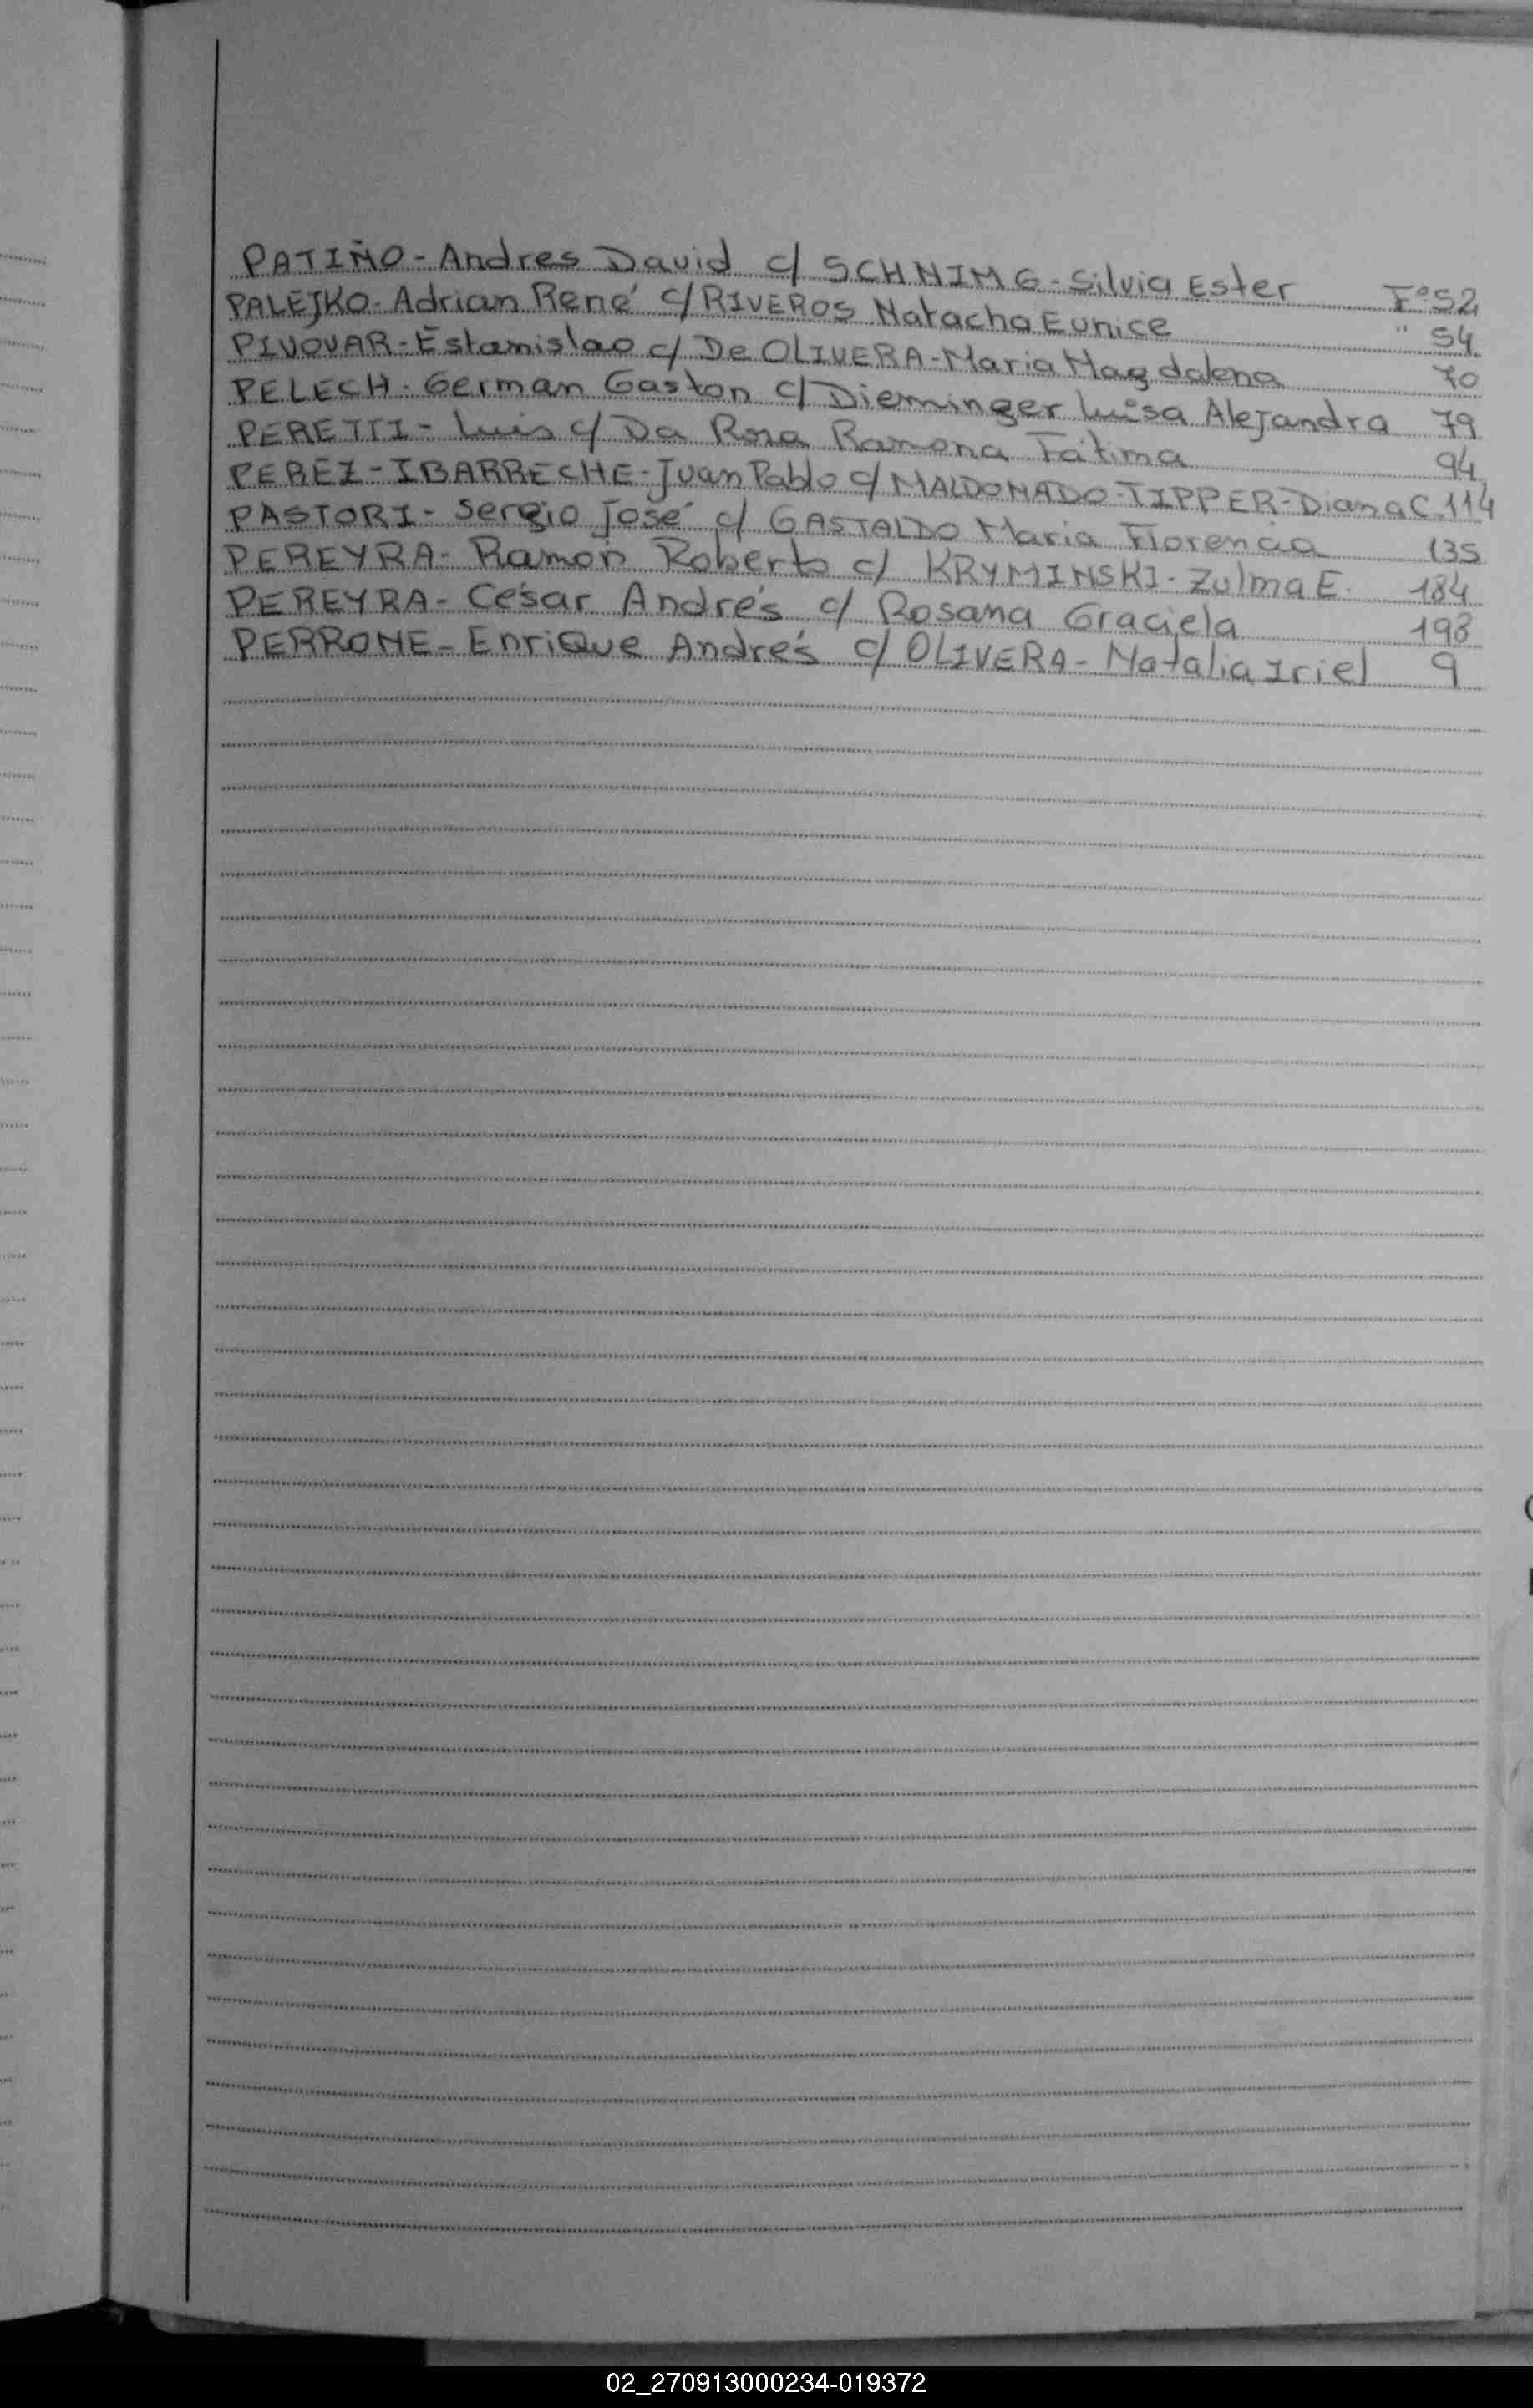 PATIÑO - Andres David c/ SCHNIMG - Silvia Ester Fº 52
PALEJKO - Adrian René c/ RIVEROS Natacha Eunice " 54
PIVOVAR - Estanislao c/ De OLIVERA - Maria Magdalena 70
PELECH - German Gaston c/ Dieminger Luisa Alejandra 79
PERETTI - Luis c/ Da Rosa Ramona Fátima 94
PEREZ - IBARRECHE - Juan Pablo c/ MALDONADO - TIPPER - Diana C. 114
PASTORI - Sergio José c/ GASTALDO Maria Florencia 135
PEREYRA - Ramón Roberto c/ KRYMINSKI - Zulma E. 184
PEREYRA - César Andrés c/ Rosana Graciela 198
PERRONE - Enrique Andrés c/ OLIVERA - Natalia Iriel 9
02_270913000234-019372